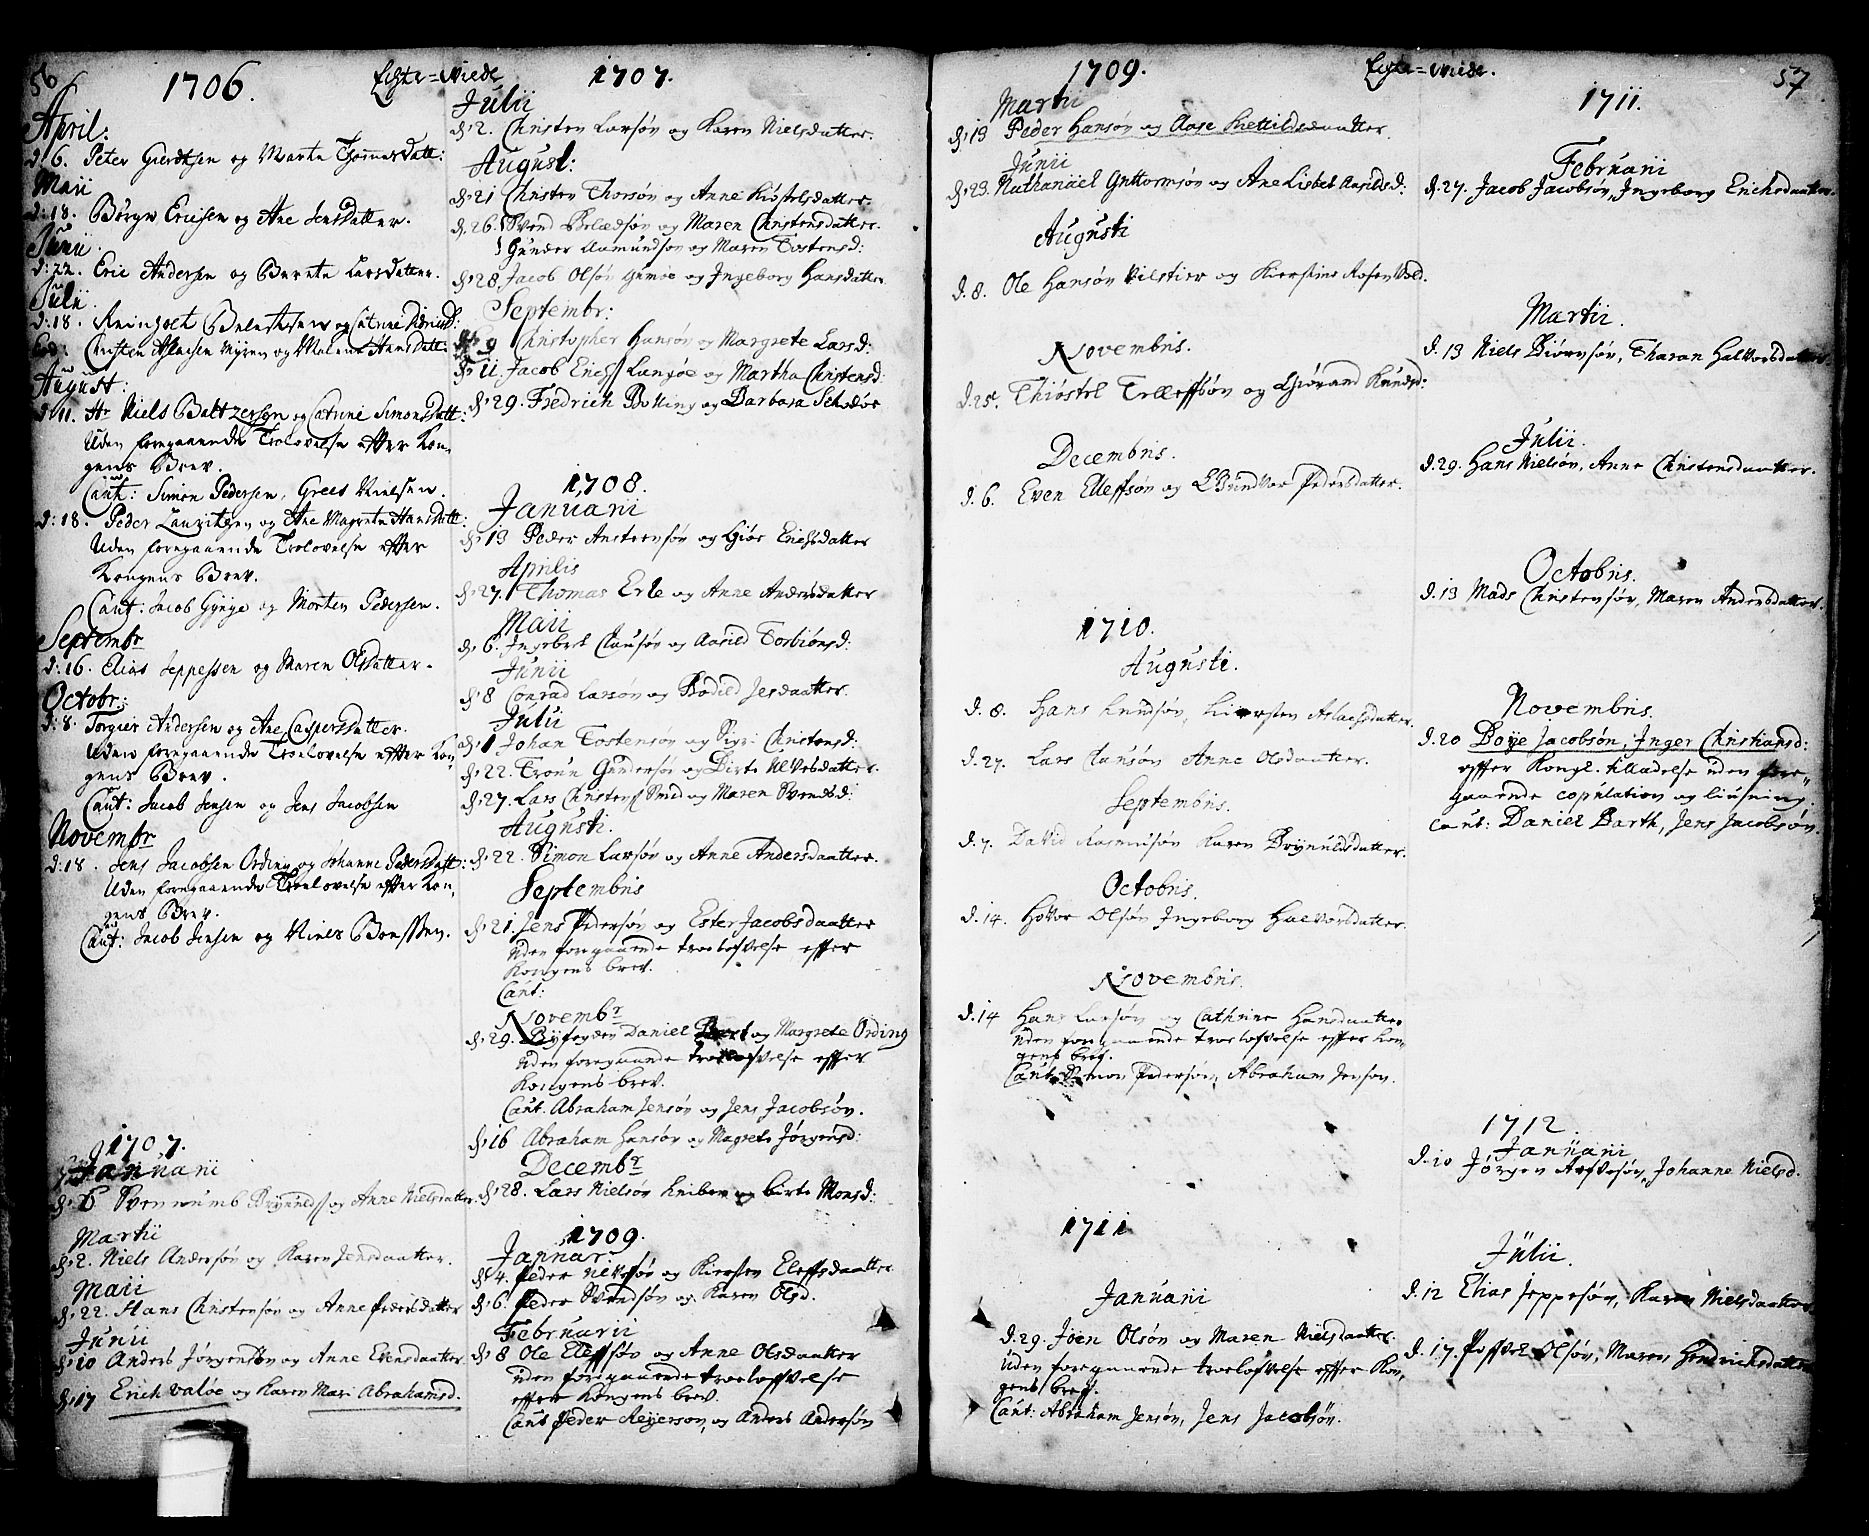 56
1706.
Egte=Viede
April:
d: 6. Peter Gierdtsen og Marta Thomasdatt:
Maii
d: 18. Børgu Ericsen og Ane Jensdatter.
Junii
d: 22. Eric Andersen og Berete Larsdatter.
Julii.
d: 18.
August:
d: 11. Hr Niels Baltzersen og Catrine Simonsdatt:
Uden foregaaende Trolovelse efter Kon-
gens Brev.
Caut: Simon Pedersen, Greels Nielsen.
d: 18. Peder Lauritzen og Ane Magrete Hansdatt:
Uden foregaaende Trolovelse efter
Kongens Brev.
Caut: Jacob Gynge og Morten Pedersen.
Septembr
d: 16. Elias Jeppessen og Maren Olsdatter.
Octobr:
d: 8. Torger Andersen og Ane Caspersdatter.
Uden foregaaende Troelovelse efter Kon-
gens Brev.
Caut: Jacob Jensen og Jens Jacobsen
Novembr
d: 18. Jens Jacobsen Ording og Johanne Pedersdatt:
Uden foregaaende Troelovelse efter Kon-
gens Brev.
Caut: Jacob Jensen og Niels Bentssen.
1707.
Januarii
d. 6 Sven Brynilds og Anne Nielsdatter.
Martii
d. 2. Niels Andersøn og Karen Jensdaatter.
Maii
d. 22. Hans Christensøn og Anne Pedersdatter
Junii
d. 10 Anders Jørgensøn og Anne Evensdaatter
d. 17 Erich Valøe og Karen Mari Abrahamsd.
1707.
Julii
d. 2. Christen Larsøn og Karen Nielsdatter.
August:
d. 21 Christen Thorsøn og Anne Kiøstelsdatter
d. 26. Svend Børledsøn og Maren Christensdatter.
Gunder Aamundsøn og Maren Tostensd:
d. 28. Jacob Olsøn Gumøe og Ingeborg Hansdatter
Septembr:
d. 9 Christopher Hansøn og Margrete Larsd:
d. 11. Jacob Erichs Langøe og Martha Christensd:
d. 29. Fredrich Bolling og Barbara Schrøder
1708.
Januarii
d. 13 Peder Anstensøn og Giør Erichsdatter
Aprilis
d. 27. Thomas Erle og Anne Andersdatter
Maii
d. 6. Ingebret Clausøn og Aasild Torbiønsd:
Junii
d. 8 Conrad Larsøn og Bodild Jesdaatter.
Julii
d. 1 Johan Tostensøn og Sigri Christensd:
d. 22. Troun Gundersøn og Birte Alvesdatter.
d. 27. Lars Christens Smid og Maren Svendsd:
Augusti.
d. 22. Simon Larsøn og Anne Andersdaatter.
Septembris
d. 21. Jens Pedersøn og Ester Jacobsdaatter
uden foregaaende troelofvelse effter
Kongens brev.
Caut:
Novembr
d. 29. Byfogden Daniel Bart og Margrete Ording
uden foregaaende troelofvelse effter
Kongens brev.
Caut. Abraham Jensøn og Jens Jacobsøn.
d. 16 Abraham Hansøn og Magrete Jørgensd:
Decembr
d. 28. Lars Nielsøn Kniben og birte Monsd:
1709.
Januar
d. 4. Peder Alvesøn og Kiersten Eleffsdaatter
d. 6. Peder Svendsøn og Karen Olsd.
Februarii
d. 8 Ole Eleffsøn og Anne Olsdaatter
uden foregaaende troeloffvelse
effter Kongens brev.
Caut Peder Reyersøn, og Anders Andersøn
1709.
Egte=Viede.
57
Martii
d. 13 Peder Hansøn og Aase Kettildsdaatter
Junii
d. 23. Nathanäel Guttormsøn og Ane Lisbet Aasildsd:
Augusti
d. 8. Ole Hansøn Vilstier og Kierstine Rosenvold.
Novembris.
d. 25. Thiøstel Trelleffsøn og Giørand Knudsd:
Decembris.
d. 6. Even Elleffsøn og Gundvor Pedersdatter.
1710.
Augusti.
d. 8. Hans Knudsøn, Kiersten Aslaesdatter.
d. 27. Lars Clausøn Anne Olsdaatter.
Septembris.
d. 7. David Rasmusøn Karen Brynildsdatter.
Octobris.
d. 14. Hover Olsøn Ingeborg Halvorsdatter.
Novembris.
d. 14 Hans Larsøn og Cathrine Hansdaatter
uden foregaaende troelofvelse effter Kon-
gens bref.
Caut. Simon Pedersøn, Abraham Jensøn.
1711
Januarii
d. 29. Joen Olsøn og Maren Nielsdaatter.
uden foregaaende troelofvelse effter Kon-
gens bref.
Caut: Abraham Jensøn, Jens Jacobsøn.
1711.
Februarii
d. 27. Jacob Jacobsøn, Ingeborg Erichsdaatter.
Martii.
d. 13 Niels Biørnsøn, Tharan Halvorsdatter
Julii.
d. 29. Hans Nielsøn, Anne Christensdaatter.
Octobris.
d. 13 Mads Christensøn, Maren Andersdatter.
Novembris.
d. 20 Boye Jacobsøn, Inger Christiansd:
effter Kongl. tilladelse uden fore-
gaaende copulation og liusning.
Caut: Daniel Barth, Jens Jacobsøn.
1712.
Januarii
d. 10 Jørgen Arfvesøn, Johanne Nielsd.
Julii.
d. 12 Elias Jeppesøn, Karen Nielsdaatter
d. 17. Poffvel Olsøn, Maren Hendrichsdatter